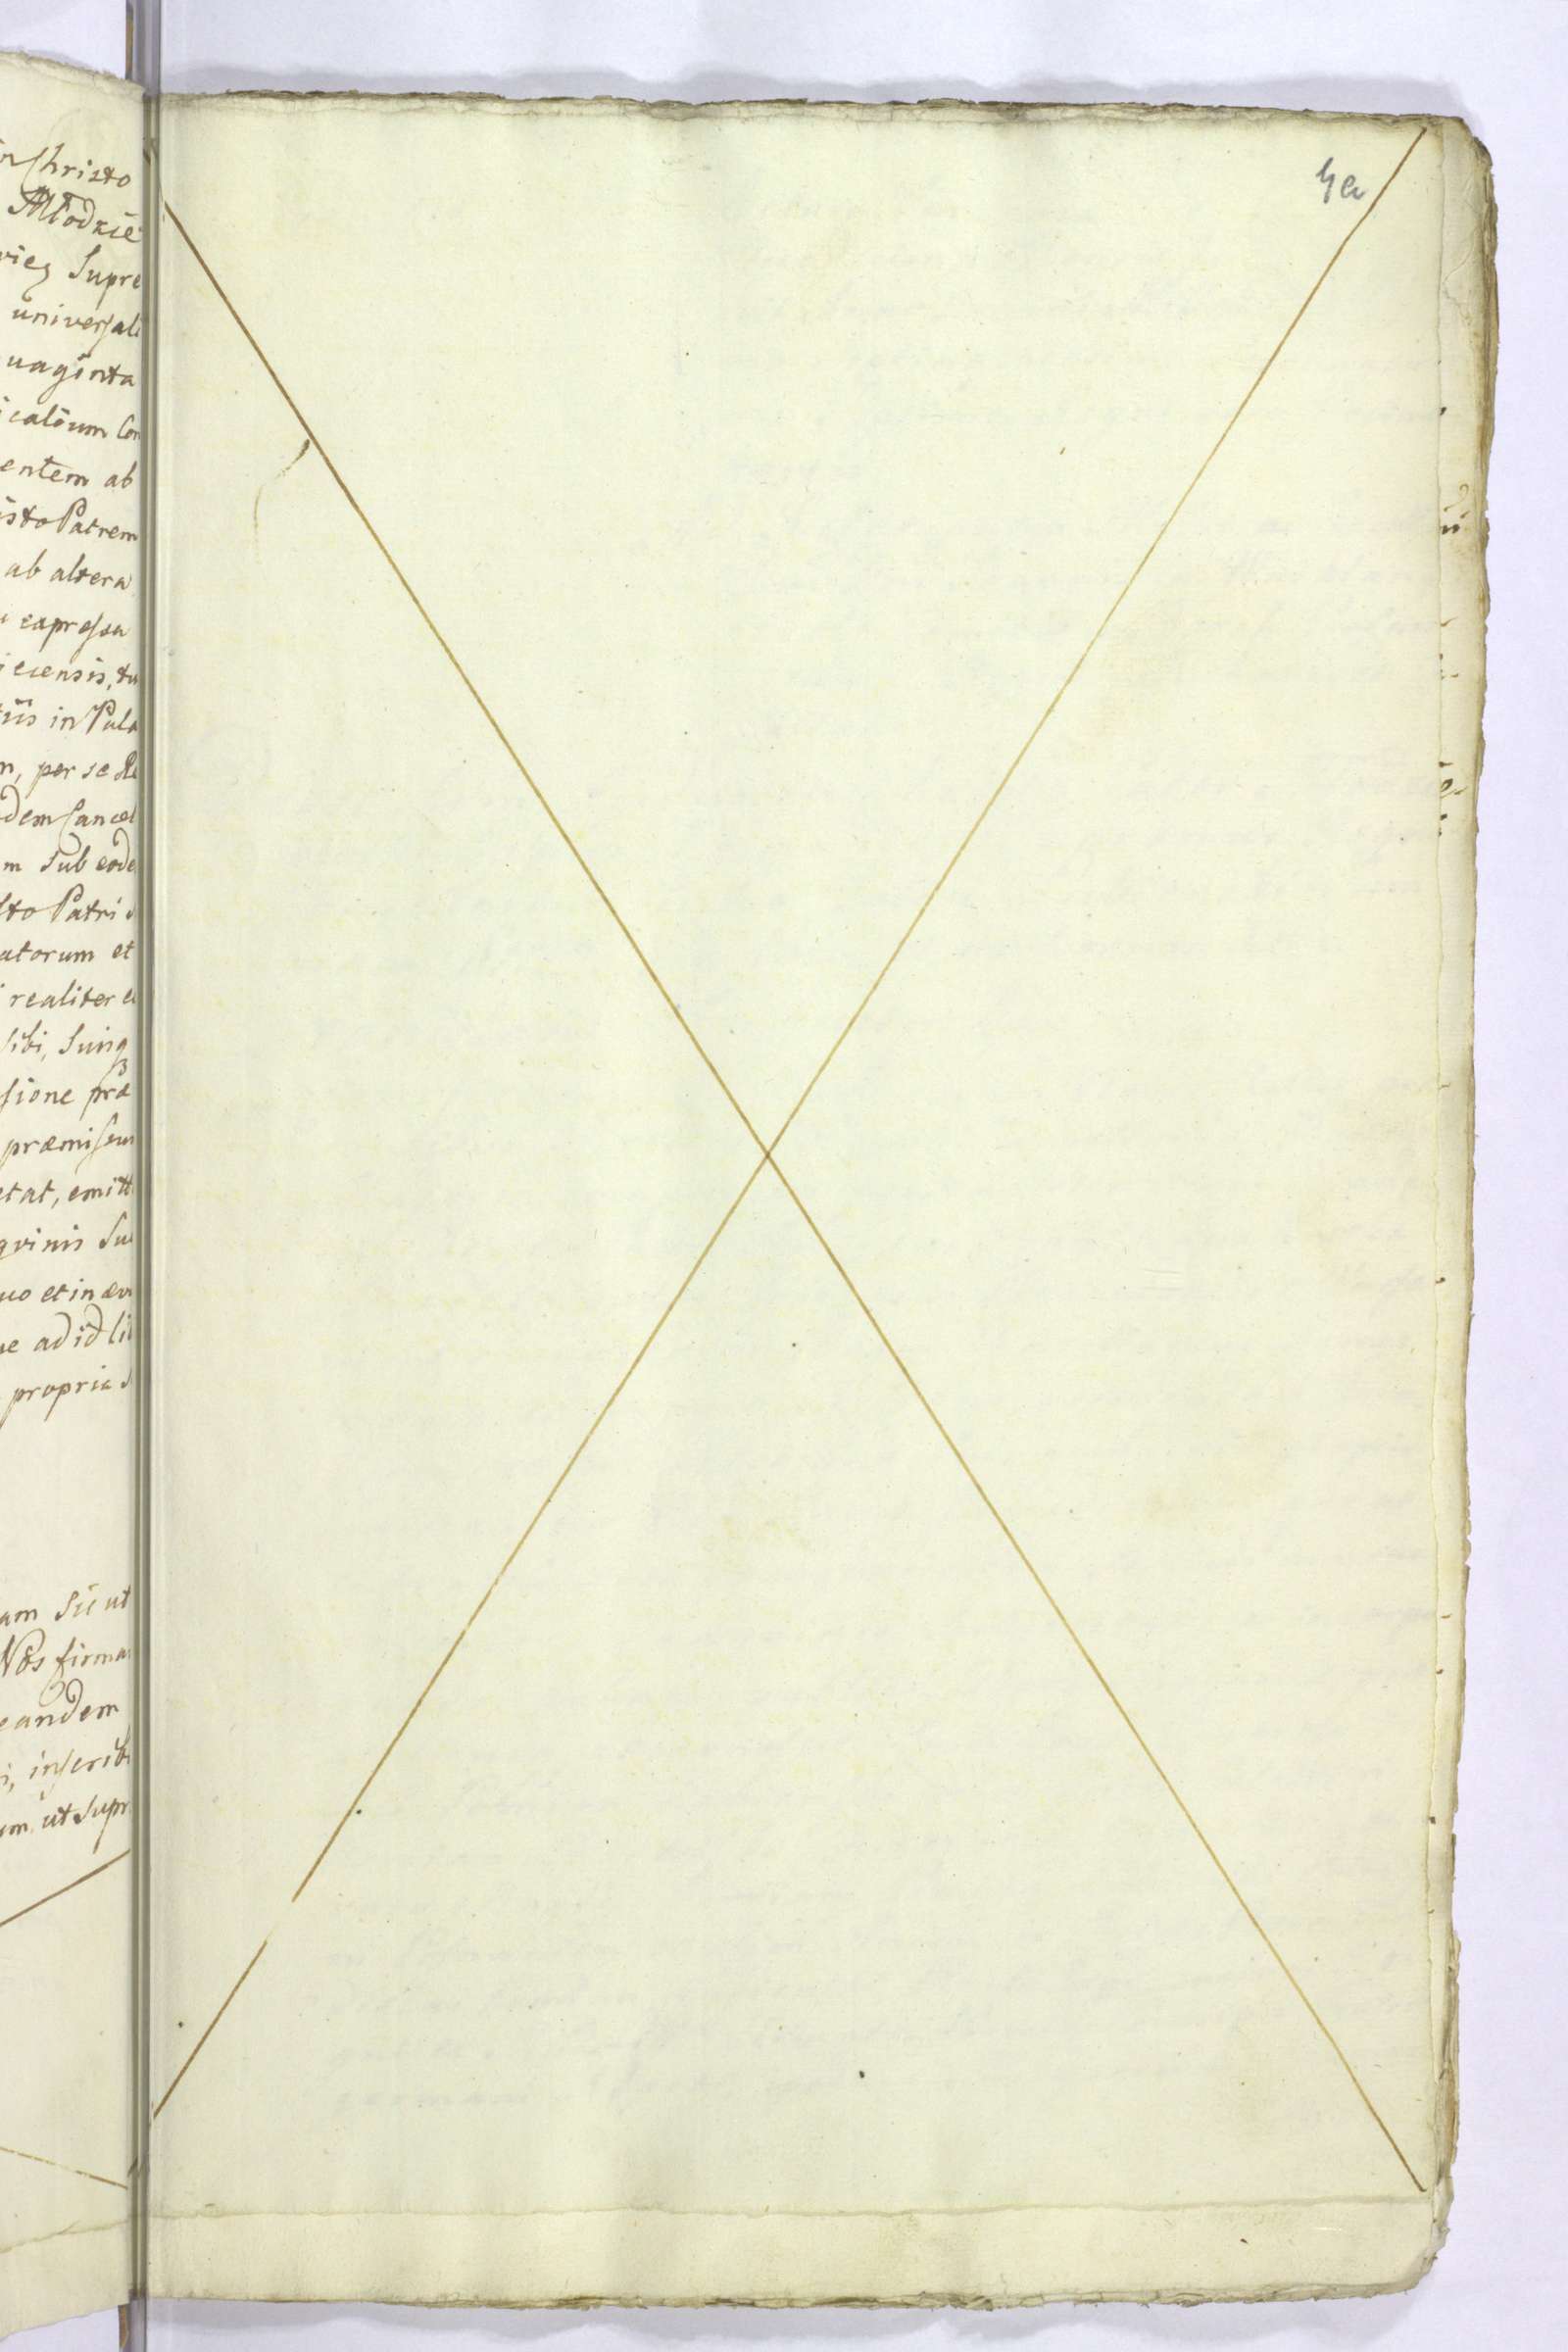 Christo
Młodzie
Supre
universali
uaginta
icalium Con
entem ab
isto Patrem
ab altera
expressa
iciensis, tu
iis in Pala
n, per se
dem Cancel
m Sub eode
sto Patri
atorum et
realiter
sibi, Suisq
sione præ
præmissu
etat, emitt
qvinis Su
uo et in æv
ue ad id li
propria
am Sic ut
Nos firma
eandem
i, inscribi
um ut Supr
4a